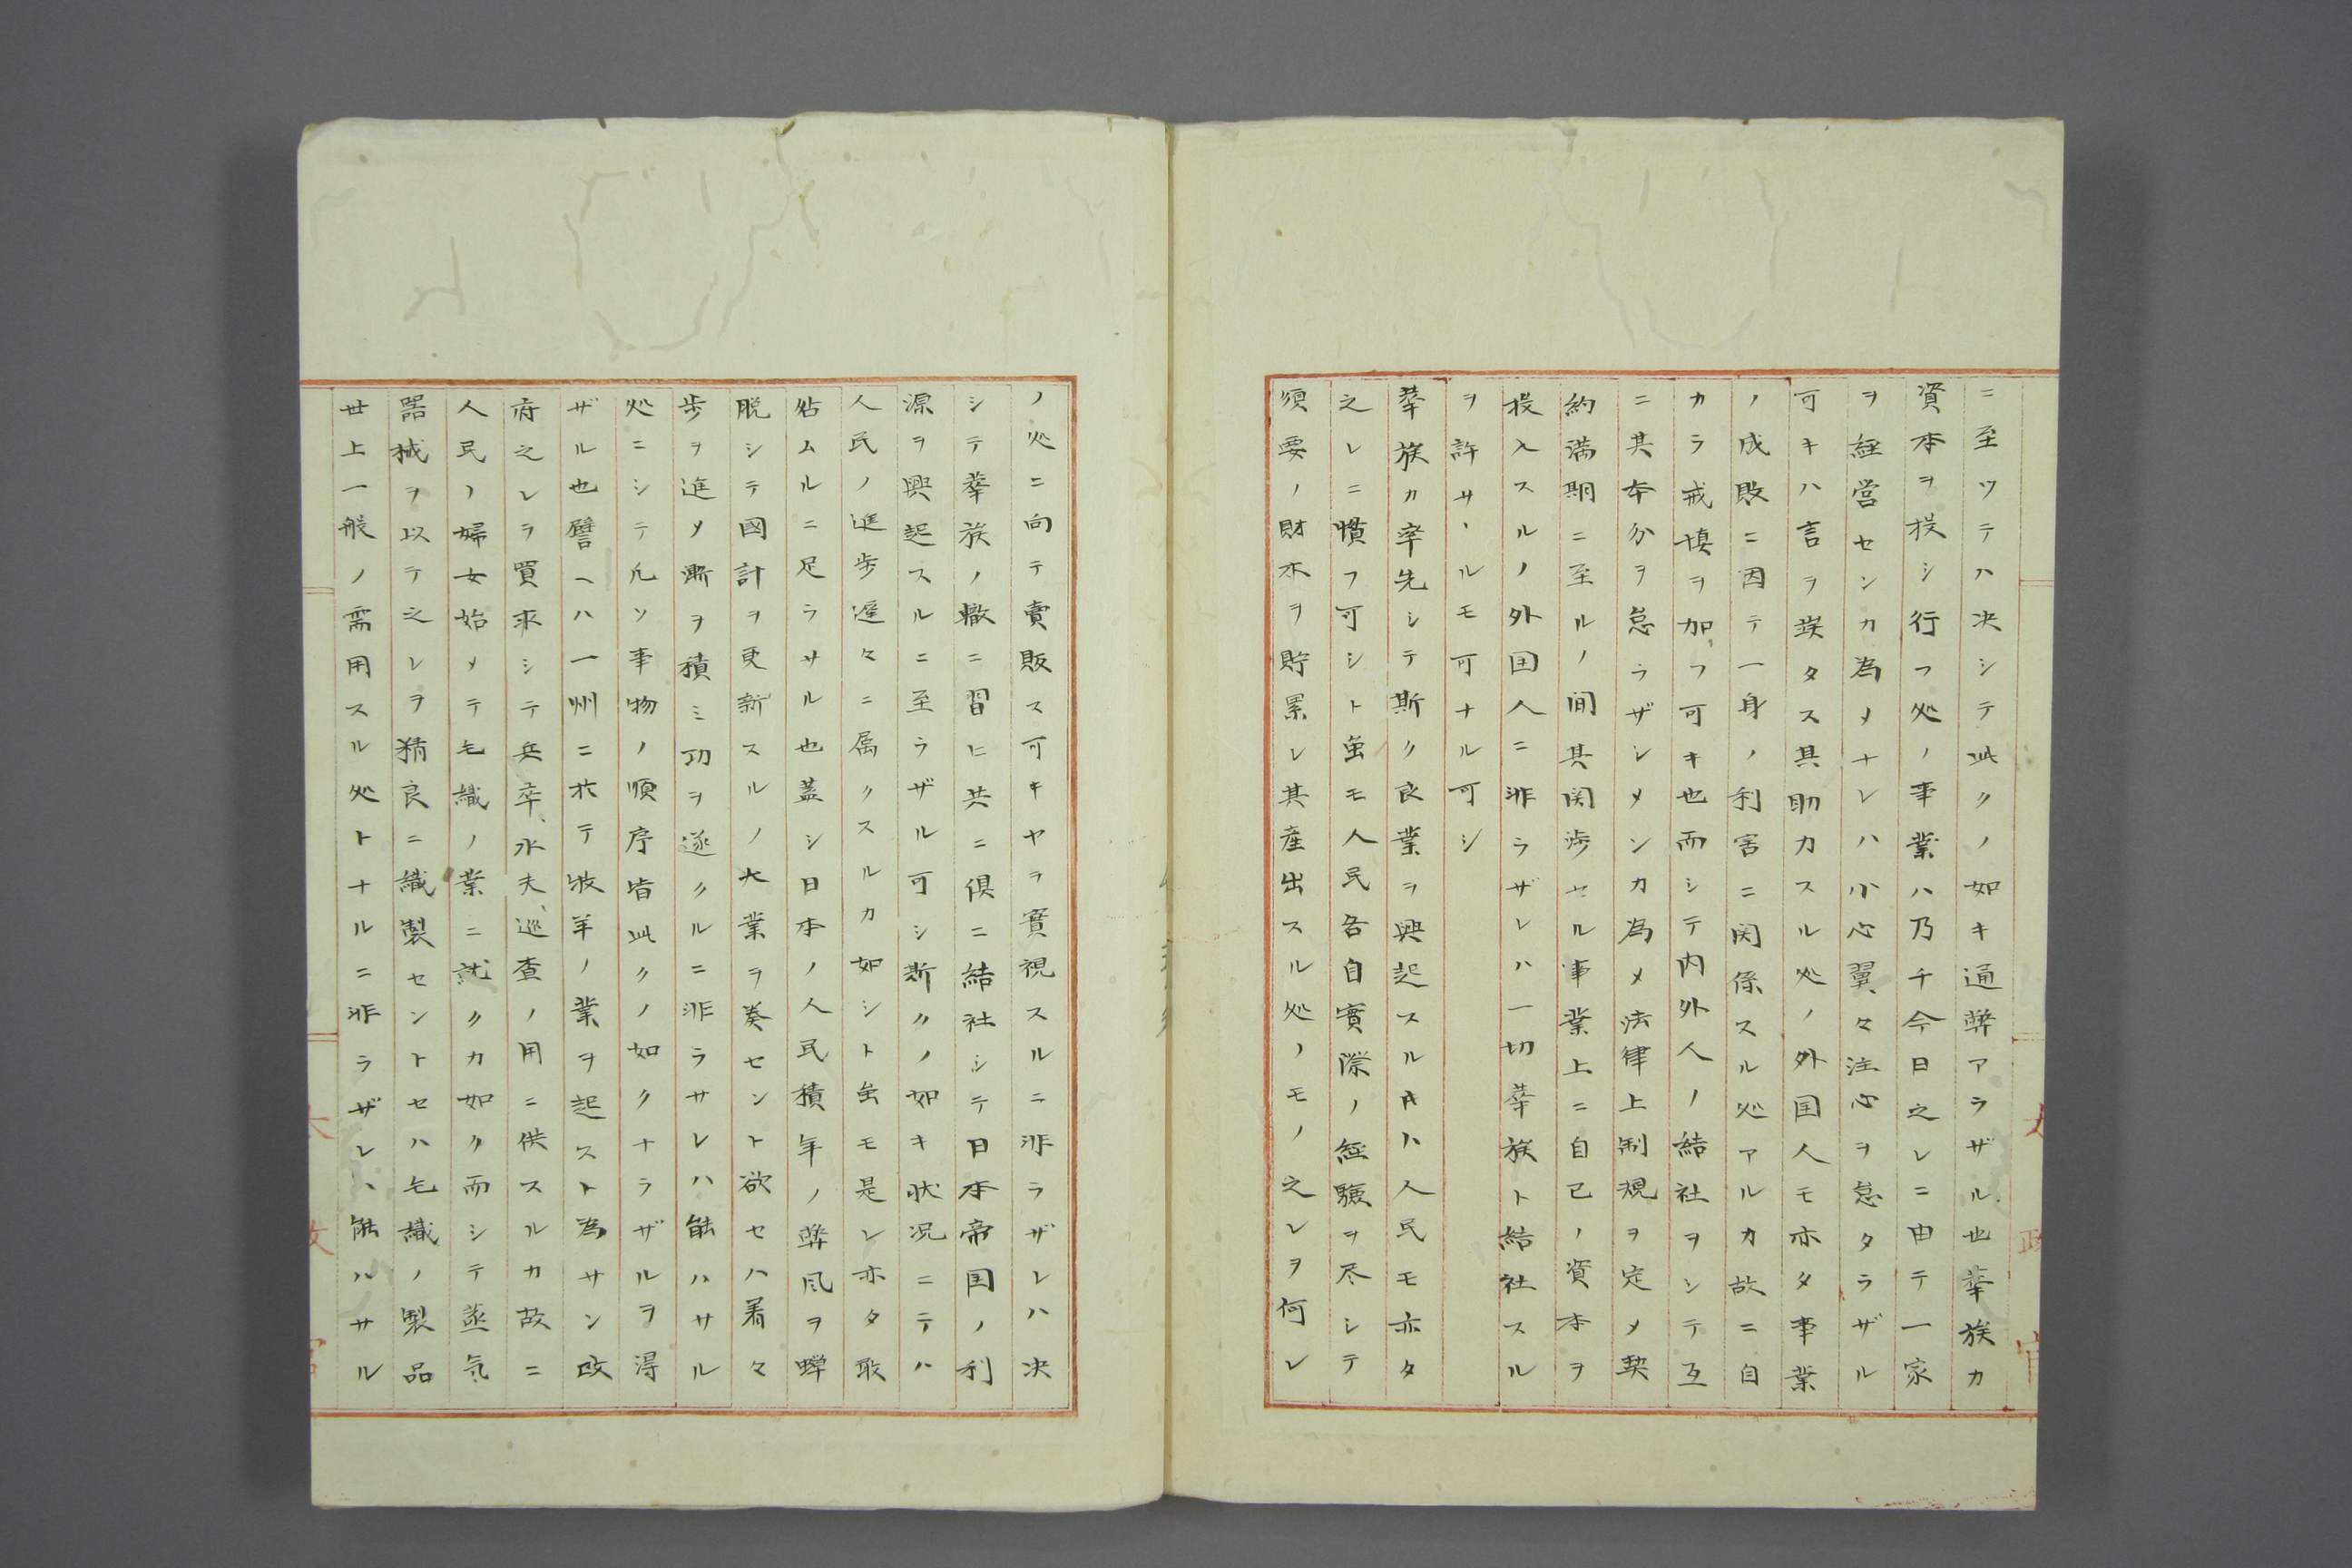 ニ至ツテハ决シテ此クノ如キ通弊アラザル也華族カ
資本ヲ投シ行フ処ノ事業ハ乃チ今日之レニ由テ一家
ヲ経営センカ為メナレハ小心翼々注心ヲ怠タラザル
可キハ言ヲ竢タス其助力スル処ノ外国人モ亦タ事業
ノ成敗ニ因テ一身ノ利害ニ関係スル処アルカ故ニ自
カラ戒慎ヲ加フ可キ也而シテ内外人ノ結社ヲシテ互
ニ其本分ヲ怠ラザシメンカ為メ法律上制規ヲ定メ契
約満期ニ至ルノ間其関渉セル事業上ニ自己ノ資本ヲ
投入スルノ外国人ニ非ラザレハ一切華族ト結社スル
ヲ許サヽルモ可ナル可シ
華族カ率先シテ斯ク良業ヲ興起スル𪜈ハ人民モ亦タ
之レニ慣フ可シト虽モ人民各自實際ノ経驗ヲ尽シテ
須要ノ財本ヲ貯累シ其産出スル処ノモノ之レヲ何レ
ノ処ニ向テ賣販ス可キヤヲ實視スルニ非ラザレハ决
シテ華族ノ轍ニ習ヒ共ニ倶ニ結社シテ日本帝国ノ利
源ヲ興起スルニ至ラザル可シ斯クノ如キ状况ニテハ
人民ノ進歩遅々ニ属クスルカ如シト虽モ是レ亦タ敢
ムルニ足ラサル也蓋シ日本ノ人民積年ノ弊風ヲ蝉
脱シテ國計ヲ更新スルノ大業ヲ奏セント欲セハ着々
歩ヲ進メ漸ヲ積ミ功ヲ遂クルニ非ラサレハ能ハサル
処ニシテ凡ソ事物ノ順序皆此クノ如クナラザルヲ得
ザル也譬ヘハ一州ニ於テ牧羊ノ業ヲ起スト為サン政
府之レヲ買求シテ兵卒、水夫、巡査ノ用ニ供スルカ故ニ
人民ノ婦女始メテ毛織ノ業ニ就クカ如ク而シテ蒸氣
器械ヲ以テ之レヲ精良ニ織製セントセハ毛織ノ製品
世上一般ノ需用スル処トナルニ非ラザレハ能ハサル